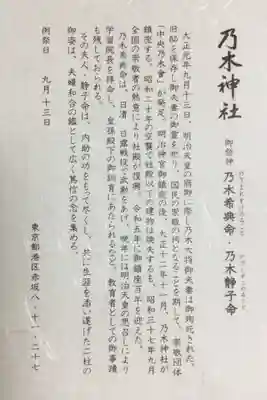 乃木神社
御祭神 乃木希典命・乃木靜子命
大正元年九月十三日、明治天皇の崩御に際し乃木大将御夫妻は御殉死された。
旧邸を保存し御夫妻の御霊を祀り、国民の崇敬の的となることを期して、崇敬団体
「中央乃木會」が発足。明治神宮御鎮座の後、大正十二年十一月、乃木神社が
鎮座する。昭和二十年の空襲で社殿以下の建物は焼失するも、昭和三十七年九月
全国の崇敬者の熱意により社殿が復興、令和五年に御鎮座百年を迎えた。
乃木希典命は、日清・日露戦役で武勲をあげ、晩年には明治天皇の思召しにより
学習院長を拝命し、皇孫殿下の御訓育にあたられるなど、教育者としての御事蹟
も残しておられる。
その夫人、静子命は、内助の功をもって尽くし、共に生涯を添い遂げた二柱の
御姿は、夫婦和合の鑑として広く篤信の念を集める。
例祭日 九月十三日
東京都港区赤坂八‐十一‐二十七